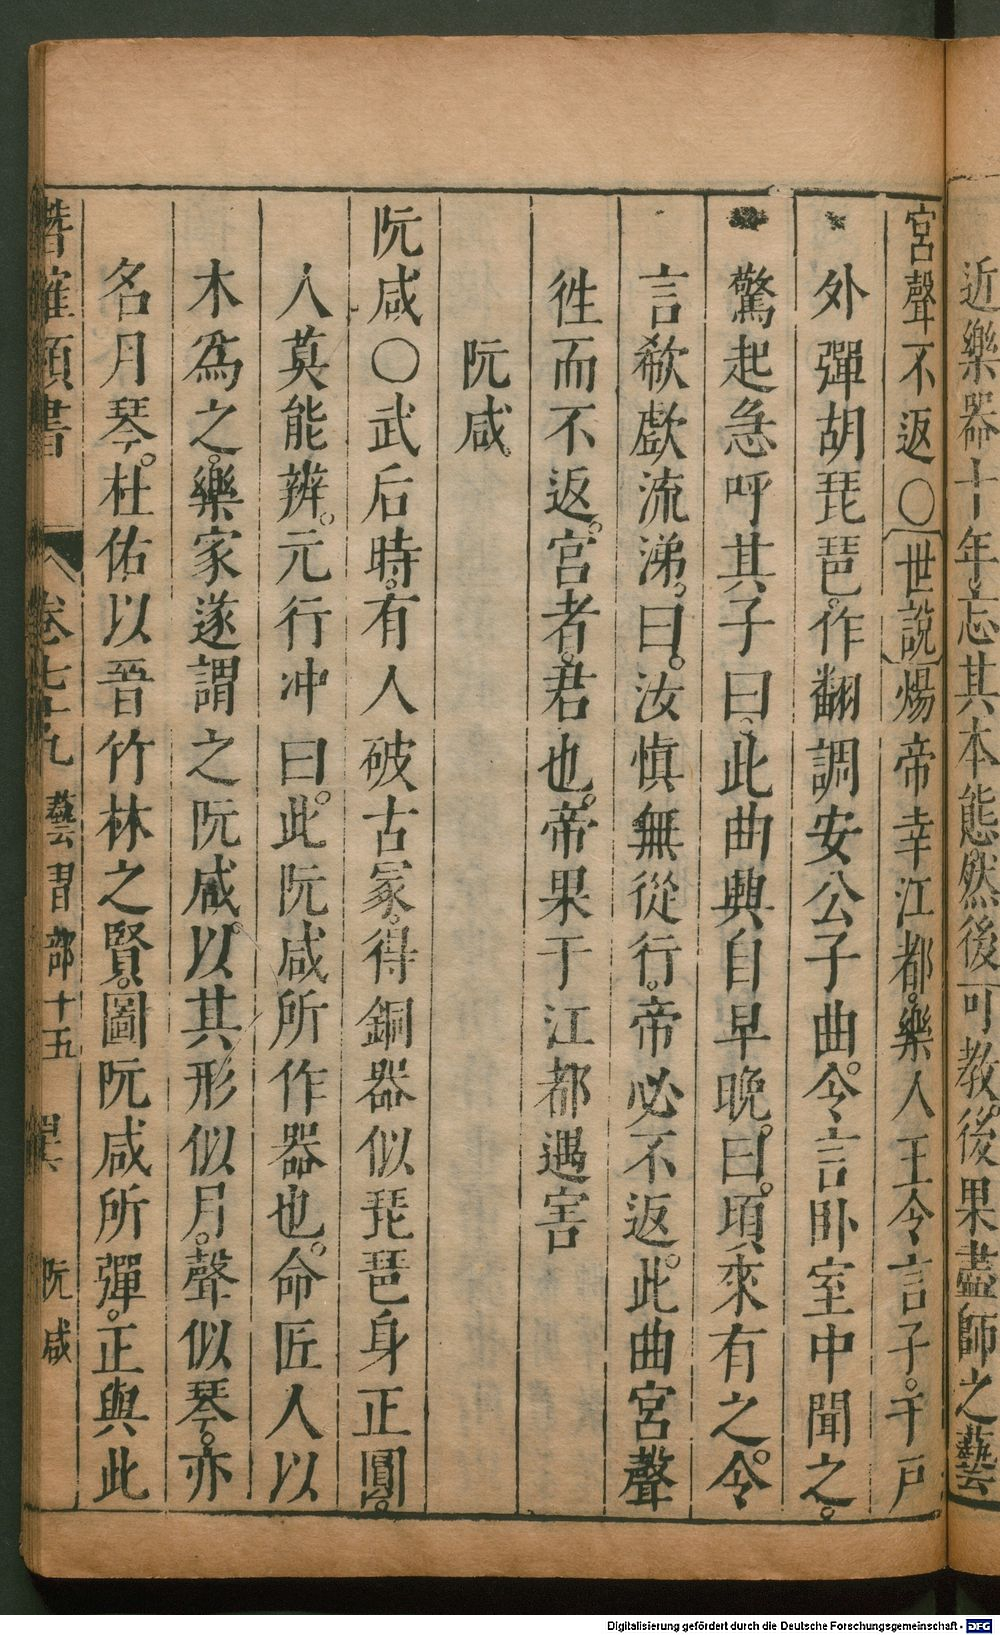 近樂器十年忘其本態然後可教後果盡師之藝
宮聲不返○世說煬帝幸江都樂人王令言子于戶
外彈胡琵琶作翻調安公子曲令言卧室中聞之
驚起急呼其子曰此曲興自早晚曰頃來有之令
言欷歔流涕曰汝慎無從行帝必不返此曲宮聲
徃而不返宮者君也帝果于江都遇害
阮咸
阮咸○武后時有人破古冢得銅器似琵琶身正圓
人莫能辨元行冲曰此阮咸所作器也命匠人以
木爲之樂家遂謂之阮咸以其形似月聲似琴亦
名月琴杜佑以晉竹林之賢圖阮咸所彈正與此
類書 卷七十九 藝習部十五 阮咸
Digitalisierung gefördert durch die Deutsche Forschungsgemeinschaft - DFG